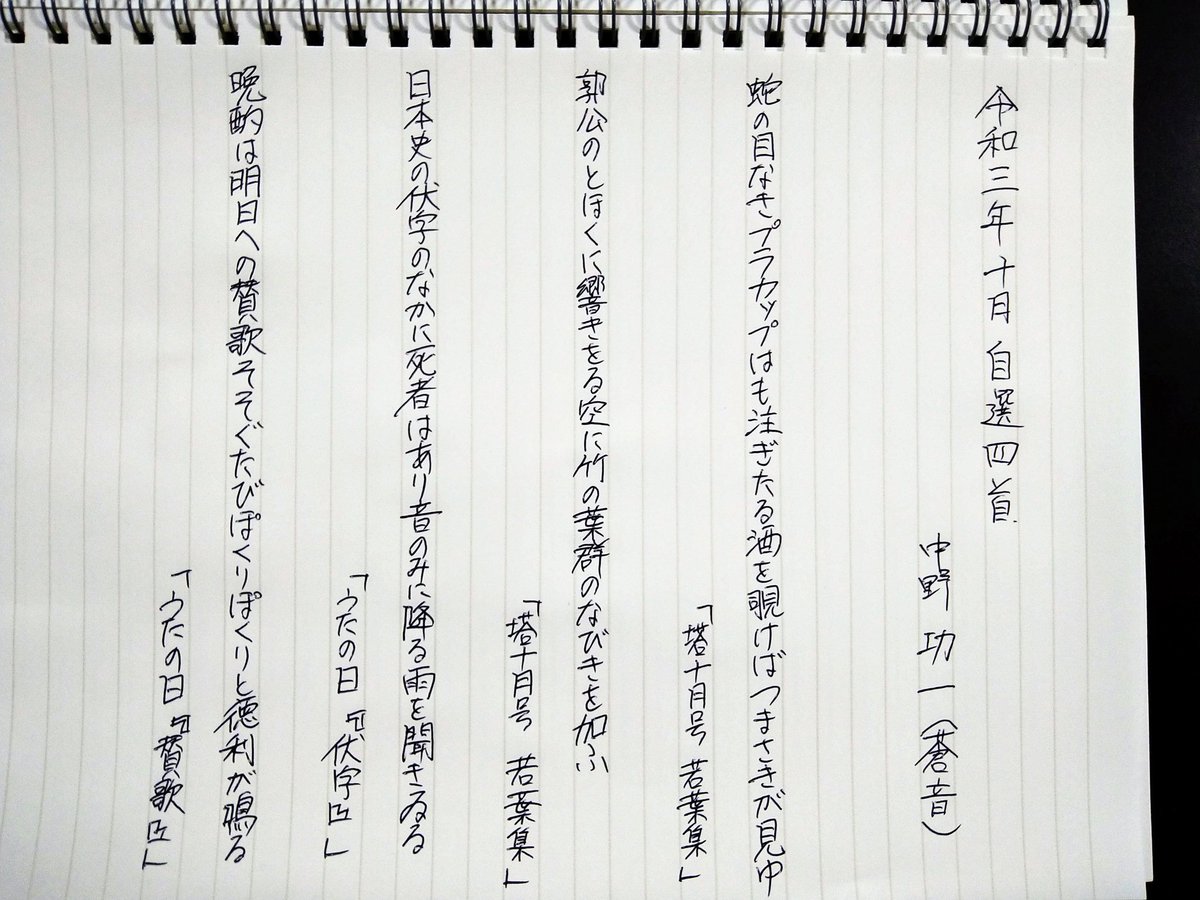 令和三年十月 自選四首
中野 功一(蒼音)
蛇の目なきプラカップはも注ぎたる酒を覗けばつまさきが見ゆ
「塔十月号 若葉集」
郭公のとほくに響きをる空に竹の葉群のなびきを加ふ
「塔十月号 若葉集」
日本史の伏字のなかに死者はあり音のみに降る雨を聞きゐる
「うたの日『伏字』」
晩酌は明日への賛歌そそぐたびぽくりぽくりと徳利が鳴る
「うたの日『賛歌』」